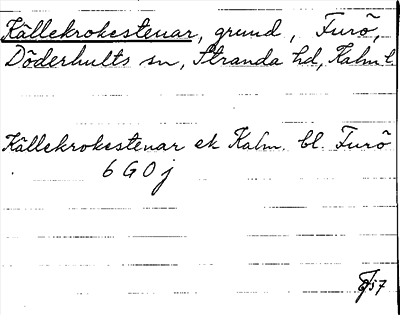 Källekrokestenar, grund, Furö,
Döderhults sn, Stranda hd, Kalm l.
Källekrokestenar ek Kalm. bl. Furö
6 G 0 j
57